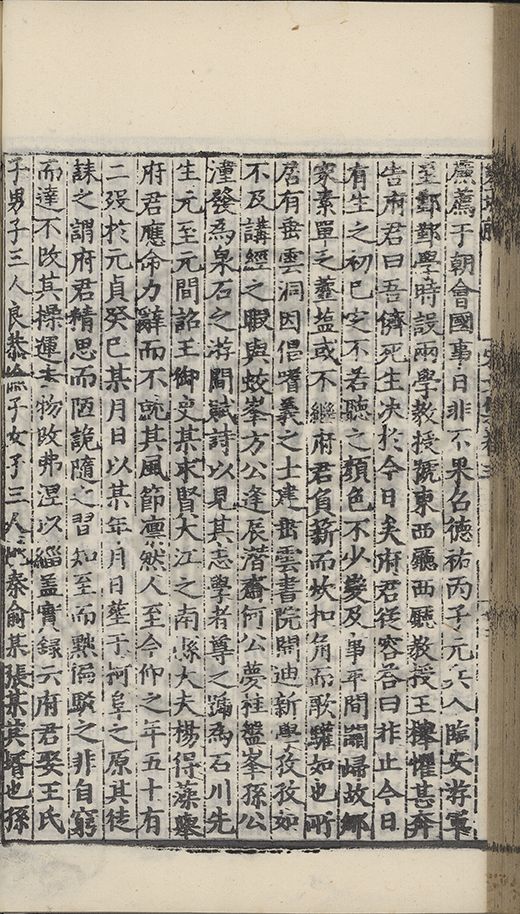 薦于朝會國事日非不果召德祐丙子元兵入臨安游軍
至鄞鄞學時設兩學教授號東西廳西廳教授王懼甚奔
告府君曰吾儕死生决於今日矣府君從容答曰非止今日
有生之初已定不若聽之顏色不少變及事平間關歸故鄉
家素單乏虀塩或不繼府君負薪而炊扣角而歌驩如也所
居有垂雲洞因倡嗜義之士建垂雲書院開迪新學孜孜如
不及講經之暇與蛟峯方公逢辰潛齋何公夢桂盤峯孫公
潼發爲泉石之游間賦詩以見其志學者尊之號爲石川先
生元至元間詔王御史某求賢大江之南縣大夫楊得藻舉
府君應命力辭而不就其風節凛然人至今仰之年五十有
二歿於元貞癸巳某月日以某年月日塟于柯阜之原其徒
誄之謂府君精思而陋詭隨之習知至而黙僞駁之非自窮
而達不改其操運去物改弗涅以緇盖實録云府君娶王氏
子男子三人良恭 子女子三人 秦俞某張某其壻也孫